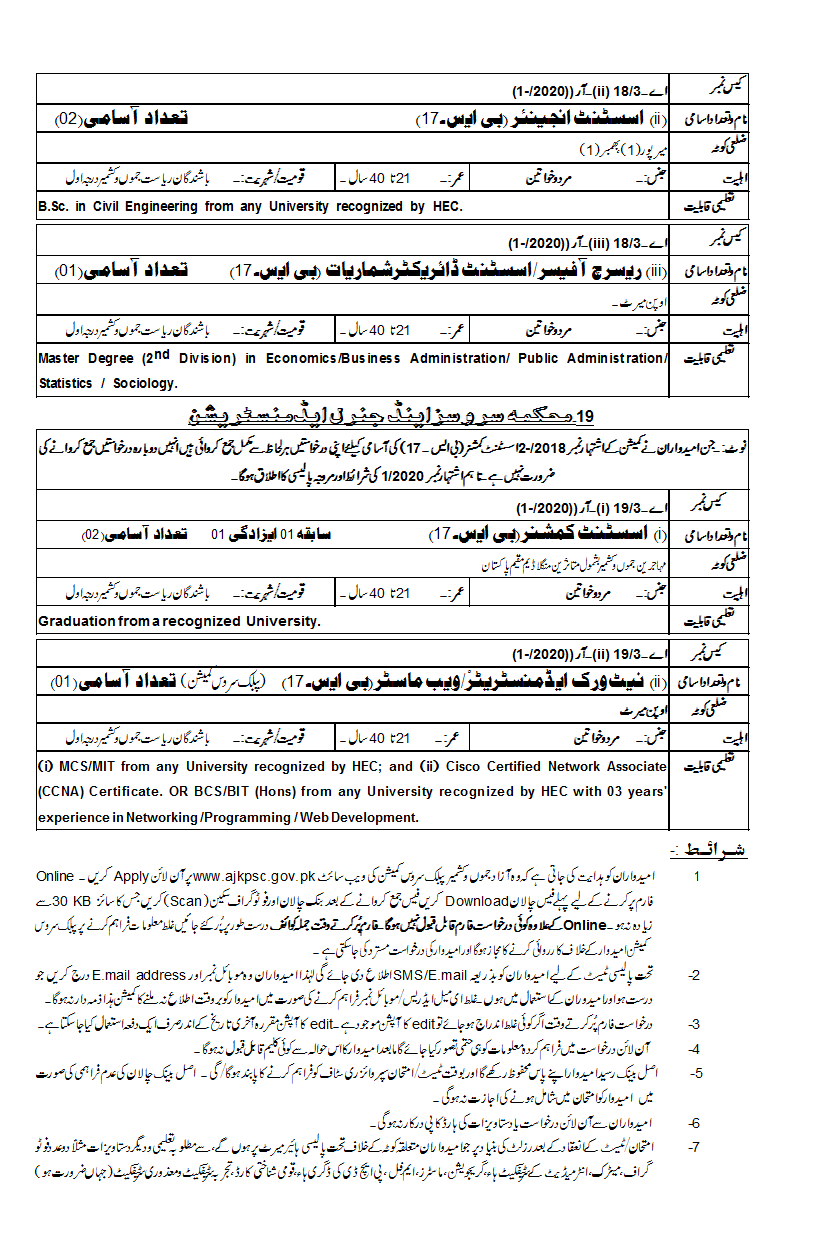 کیس نمبر اے۔18/3 (ii)۔آر ((2020/-1)
نام و تعداد اسامی (ii) اسسٹنٹ انجینئر (بی ایس۔17) تعداد آسامی(02)
ضلعی کوٹہ میرپور(1) بھمبر(1)
اہلیت جنس:۔ مرد و خواتین عمر:۔ 21 تا 40 سال ۔ قومیت/شہریت:۔ باشندگان ریاست جموں و کشمیر درجہ اول
تعلیمی قابلیت B.Sc. in Civil Engineering from any University recognized by HEC.
کیس نمبر اے۔18/3 (iii)۔آر ((2020/-1)
نام و تعداد اسامی (iii) ریسرچ آفیسر/اسسٹنٹ ڈائریکٹر شماریات (بی ایس۔17) تعداد آسامی(01)
ضلعی کوٹہ اوپن میرٹ ۔
اہلیت جنس:۔ مرد و خواتین عمر:۔ 21 تا 40 سال ۔ قومیت/شہریت:۔ باشندگان ریاست جموں و کشمیر درجہ اول
تعلیمی قابلیت Master Degree (2nd Division) in Economics/Business Administration/ Public Administration/
Statistics / Sociology.
19 محکمہ سروسز اینڈ جنرل ایڈمنسٹریشن
نوٹ:۔ جن امیدواران نے کمیشن کے اشتہار نمبر 2018/-2 اسسٹنٹ کمشنر (بی ایس ۔ 17) کی آسامی کیلئے اپنی درخواستیں ہر لحاظ سے مکمل جمع کروائی ہیں انہیں دوبارہ درخواستیں جمع کروانے کی
ضرورت نہیں ہے ۔ تاہم اشتہار نمبر 1/2020 کی شرائط اور مروجہ پالیسی کا اطلاق ہوگا ۔
کیس نمبر اے۔19/3 (i)۔آر ((2020/-1)
نام و تعداد اسامی (i) اسسٹنٹ کمشنر (بی ایس۔17) سابقہ 01 ایزادگی 01 تعداد آسامی(02)
ضلعی کوٹہ مہاجرین جموں و کشمیر بشمول متاثرین منگلا ڈیم مقیم پاکستان
اہلیت جنس:۔ مرد و خواتین عمر:۔ 21 تا 40 سال ۔ قومیت/شہریت:۔ باشندگان ریاست جموں و کشمیر درجہ اول
تعلیمی قابلیت Graduation from a recognized University.
کیس نمبر اے۔19/3 (ii)۔آر ((2020/-1)
نام و تعداد اسامی (ii) نیٹ ورک ایڈمنسٹریٹر/ویب ماسٹر (بی ایس۔17) (پبلک سروس کمیشن) تعداد آسامی (01)
ضلعی کوٹہ اوپن میرٹ
اہلیت جنس:۔ مرد و خواتین عمر:۔ 21 تا 40 سال ۔ قومیت/شہریت:۔ باشندگان ریاست جموں و کشمیر درجہ اول
تعلیمی قابلیت (i) MCS/MIT from any University recognized by HEC; and (ii) Cisco Certified Network Associate
(CCNA) Certificate. OR BCS/BIT (Hons) from any University recognized by HEC with 03 years'
experience in Networking /Programming / Web Development.
شرائط :-
1 امیدواران کو ہدایت کی جاتی ہے کہ وہ آزاد جموں و کشمیر پبلک سروس کمیشن کی ویب سائٹ www.ajkpsc.gov.pk پر آن لائن Apply کریں ۔ Online
فارم پر کرنے کے لیے پہلے فیس چالان Download کریں فیس جمع کروانے کے بعد بنک چالان اور فوٹوگراف سکین (Scan) کریں جس کا سائز 30 KB سے
زیادہ نہ ہو ۔ Online کے علاوہ کوئی درخواست فارم قابل قبول نہیں ہوگا ۔ فارم پُر کرتے وقت جملہ کوائف درست طور پر پُر کئے جائیں غلط معلومات فراہم کرنے پر پبلک سروس
کمیشن امیدوار کے خلاف کارروائی کرنے کا مجاز ہوگا اور امیدوار کی درخواست مسترد کی جاسکتی ہے ۔
-2 تحت پالیسی ٹیسٹ کے لیے امیدواران کو بذریعہ SMS/E.mail اطلاع دی جائے گی لہٰذا امیدواران وہ موبائل نمبر اور E.mail address درج کریں جو
درست ہو اور امیدواران کے استعمال میں ہوں ۔ غلط ای میل ایڈریس/موبائل نمبر فراہم کرنے کی صورت میں امیدوار کو بروقت اطلاع نہ ملنے کا کمیشن ہذا ذمہ دار نہ ہوگا ۔
-3 درخواست فارم پُر کرتے وقت اگر کوئی غلط اندراج ہو جائے تو edit کا آپشن موجود ہے ۔ edit کا آپشن مقررہ آخری تاریخ کے اندر صرف ایک دفعہ استعمال کیا جاسکتا ہے ۔
-4 آن لائن درخواست میں فراہم کردہ معلومات کو ہی حتمی تصور کیا جائے گا مابعد امیدوار کا اس حوالہ سے کوئی کلیم قابل قبول نہ ہوگا ۔
-5 اصل بینک رسید امیدوار اپنے پاس محفوظ رکھے گا اور بوقت ٹیسٹ/امتحان سپروائزری سٹاف کو فراہم کرنے کا پابند ہوگا/گی ۔ اصل بینک چالان کی عدم فراہمی کی صورت
میں امیدوار کو امتحان میں شامل ہونے کی اجازت نہ ہوگی ۔
-6 امیدواران سے آن لائن درخواست یا دستاویزات کی ہارڈ کاپی درکار نہ ہوگی ۔
-7 امتحان/ٹیسٹ کے انعقاد کے بعد رزلٹ کی بنیاد پر جو امیدواران متعلقہ کوٹہ کے خلاف تحت پالیسی ہائیر میرٹ پر ہوں گے، سے مطلوبہ تعلیمی و دیگر دستاویزات مثلاً دو عدد فوٹو
گراف، میٹرک، انٹرمیڈیٹ کے سرٹیفکیٹ ہاء، گریجویشن، ماسٹرز، ایم فل، پی ایچ ڈی کی ڈگری ہاء، قومی شناختی کارڈ، تجربہ سرٹیفکیٹ و معذوری سرٹیفکیٹ (جہاں ضرورت ہو)